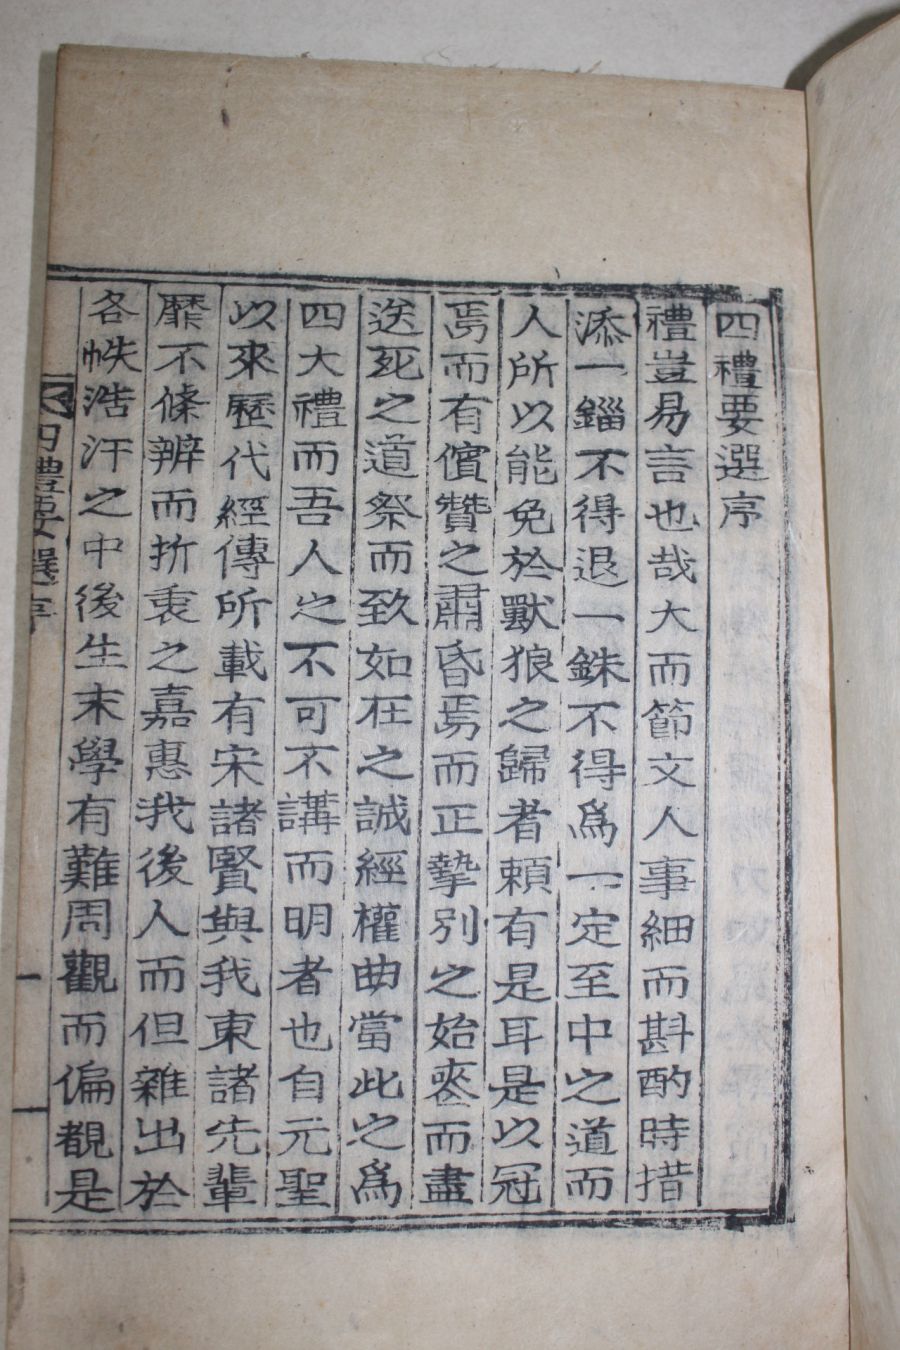 四禮要選序
禮豈易言也哉大而節文人事細而斟酌時措
添一錙不得退一銖不得爲一定至中之道而
人所以能免於獸狼之歸者賴有是耳是以冠
焉而有儐贊之肅昏焉而正摯別之始喪而盡
送死之道祭而致如在之誠經權曲當此之爲
四大禮而吾人之不可不講而明者也自元聖
以來歷代經傳所載有宋諸賢與我東諸先輩
靡不條辨而折衷之嘉惠我後人而但雜出於
各帙浩汗之中後生末學有難周觀而偏覩是
四禮要選序